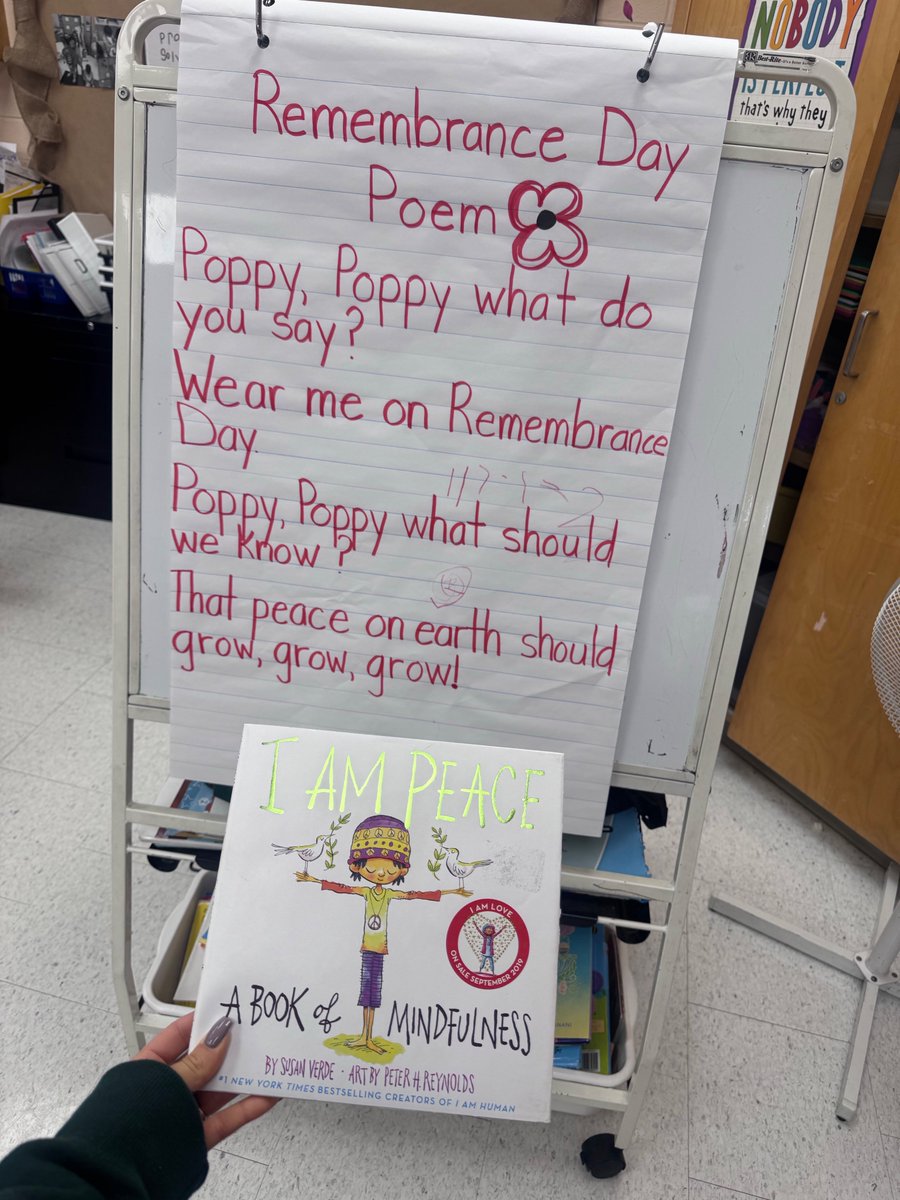 NOBODY
IS PERFECT
that's why they
Best-Rite
Remembrance Day
Poem
Poppy, Poppy what do
you say?
Wear me on Remembrance
Day.
Poppy, Poppy what should
we know?
That peace on earth should
grow, grow, grow!
I AM PEACE
I AM LOVE
ON SALE SEPTEMBER 2019
A BOOK of MINDFULNESS
BY SUSAN VERDE · ART BY PETER H. REYNOLDS
#1 NEW YORK TIMES BESTSELLING CREATORS OF I AM HUMAN